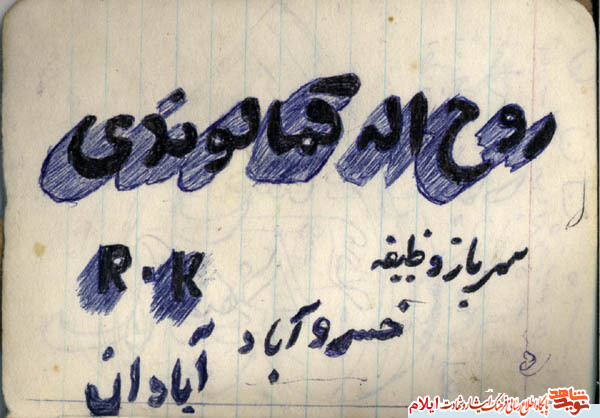 روح اله کمالوندی
سرباز وظیفه
R.K
خسروآباد آبادان
نوید شاهد
پایگاه اطلاع رسانی فرهنگ ایثار و شهادت ایلام